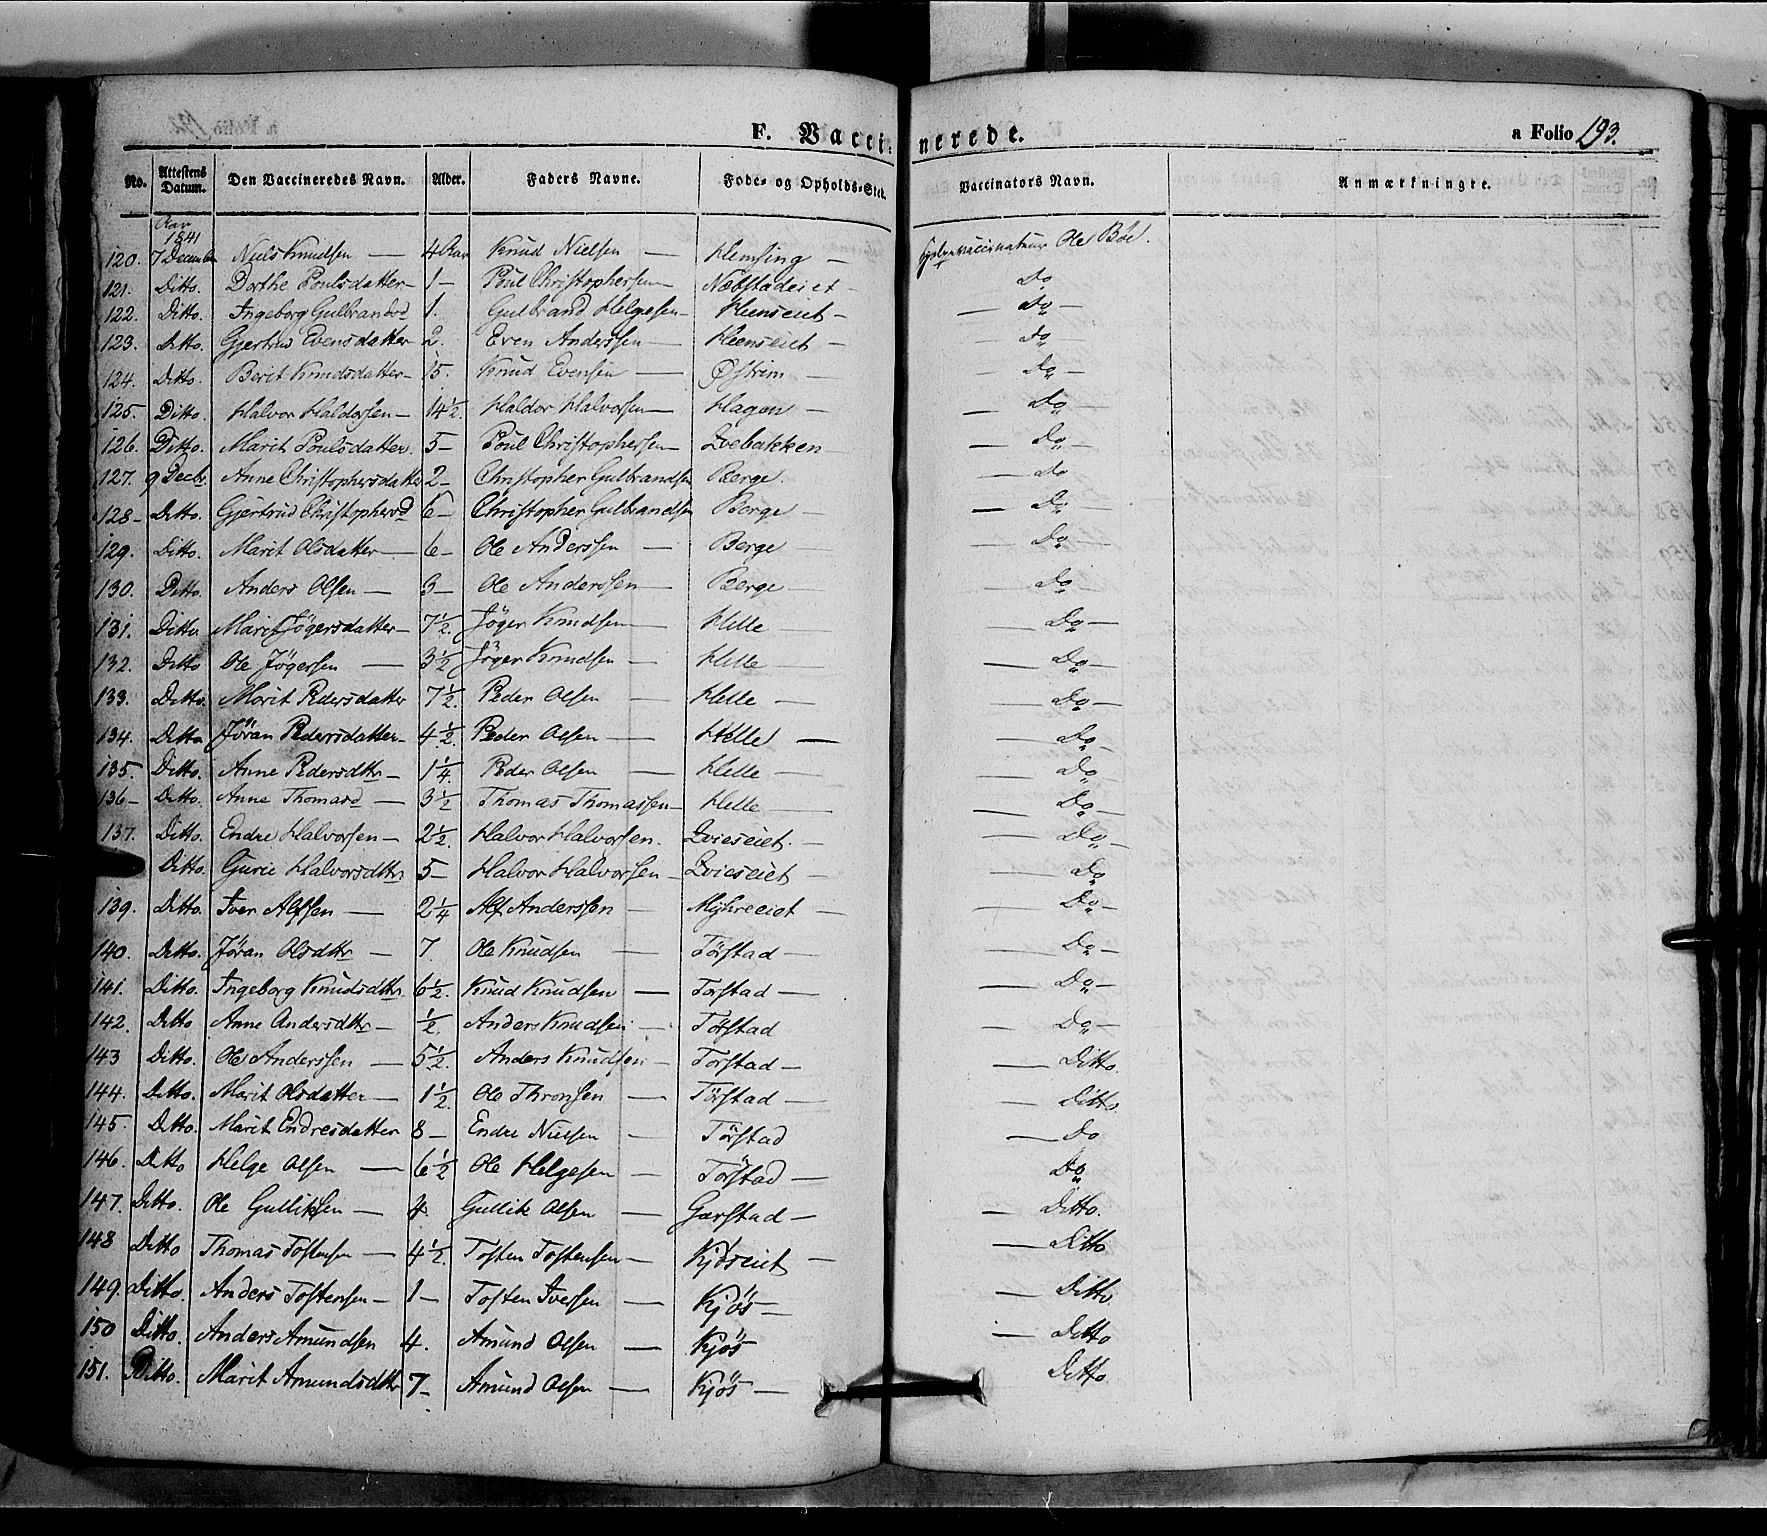 F. Vaccinerede. a Folio 193.
No. Attestens Datum. Den Vaccineredes Navn. Alder. Faders Navne. Føde- og Opholds-Sted. Vaccinators Navn. Anmærkningre.
Aar 1841
120. 7 December Niels Knudsen — 4 Aar Knud Nielsen — Hemsing — Hjelpevaccinateur Ole Bøe.
121. Ditto. Dorthe Poulsdatter — 1 — Poul Christophersen — Næbstadeiet — Do
122. Ditto. Ingeborg Gulbrandsd 1. Gulbrand Helgesen — Heenseiet — — Do —
123. Ditto. Gjertrud Evensdatter 2. Even Anderssen — Heenseiet — — Do —
124. Ditto. Berit Knudsdatter — 15. Knud Evensen — Østrem — — Do —
125. Ditto. Halvor Haldorsen — 14½. Haldor Halvorsen — Hagen — — Do —
126. Ditto. Marit Poulsdatter. 5 — Poul Christophersen — Qvebakken — — Do —
127. 9 Decbr. Anne Christophersdatter 2 — Christopher Gulbrandsen Berge — — Do
128 — Ditto. Gjertrud Christophersd 6 — Christopher Gulbrandsen Berge — — Do —
129. Ditto. Marit Olsdatter — 6 — Ole Anderssen — Berge — Do —
130. Ditto. Anders Olsen — 3 — Ole Anderssen — Berge — — Do
131. Ditto Marit Jögersdatter — 7½. Jöger Knudsen — Helle — — Do —
132. Ditto Ole Jögersen — 3½ Jöger Knudsen — Helle — — Do —
133. Ditto. Marit Pedersdatter 7½. Peder Olsen — Helle — — Do —
134. Ditto Jöran Pedersdatter — 4½. Peder Olsen — Helle — — Do —
135. Ditto. Anne Pedersdtr — 1¼. Peder Olsen — Helle — — Do
136 — Ditto. Anne Thomasd — 3½ Thomas Thomassen — Helle — — Do —
137. Ditto. Endre Halvorsen — 2½. Halvor Halvorsen. Qvieseiet. — — Do —
Ditto. Gurie Halvorsdtr 5 — Halvor Halvorsen — Qvieseiet — — Do
139. Ditto. Iver Alfsen — 2¼ Alf Anderssen — Myhreeiet — — Do —
140. Ditto. Jöran Olsdtr — 7. Ole Knudsen — Törstad — — Do —
141. Ditto. Ingeborg Knudsdtr 6½. Knud Knudsen — Torstad — — Do —
142. Ditto Anne Andersdtr — ½. Anders Knudsen — Törstad — Do —
143 Ditto. Ole Anderssen — 5½. Anders Knudsen — Torstad — — Ditto.
144. Ditto. Marit Olsdatter — 1½. Ole Thronsen — Törstad — — Ditto.
145. Ditto. Marit Endresdatter 8 — Endre Nielsen — Törstad — Do
146. Ditto Helge Olsen — 6½ Ole Helgesen — Törstad — Do
147. Ditto. Ole Gulliksen — 4. Gullik Olsen — Garstad — — Ditto.
148 Ditto Thomas Tostensen — 4½. Tosten Tostensen — Kjöseiet — — Ditto
149. Ditto. Anders Tostensen — 1 — Tosten Iversen — Kjös — — Ditto
150 Ditto. Anders Amundsen 4. Amund Olsen — Kjös — Ditto
151. Ditto. Marit Amundsdtr 7 — Amund Olsen — Kjös — Ditto